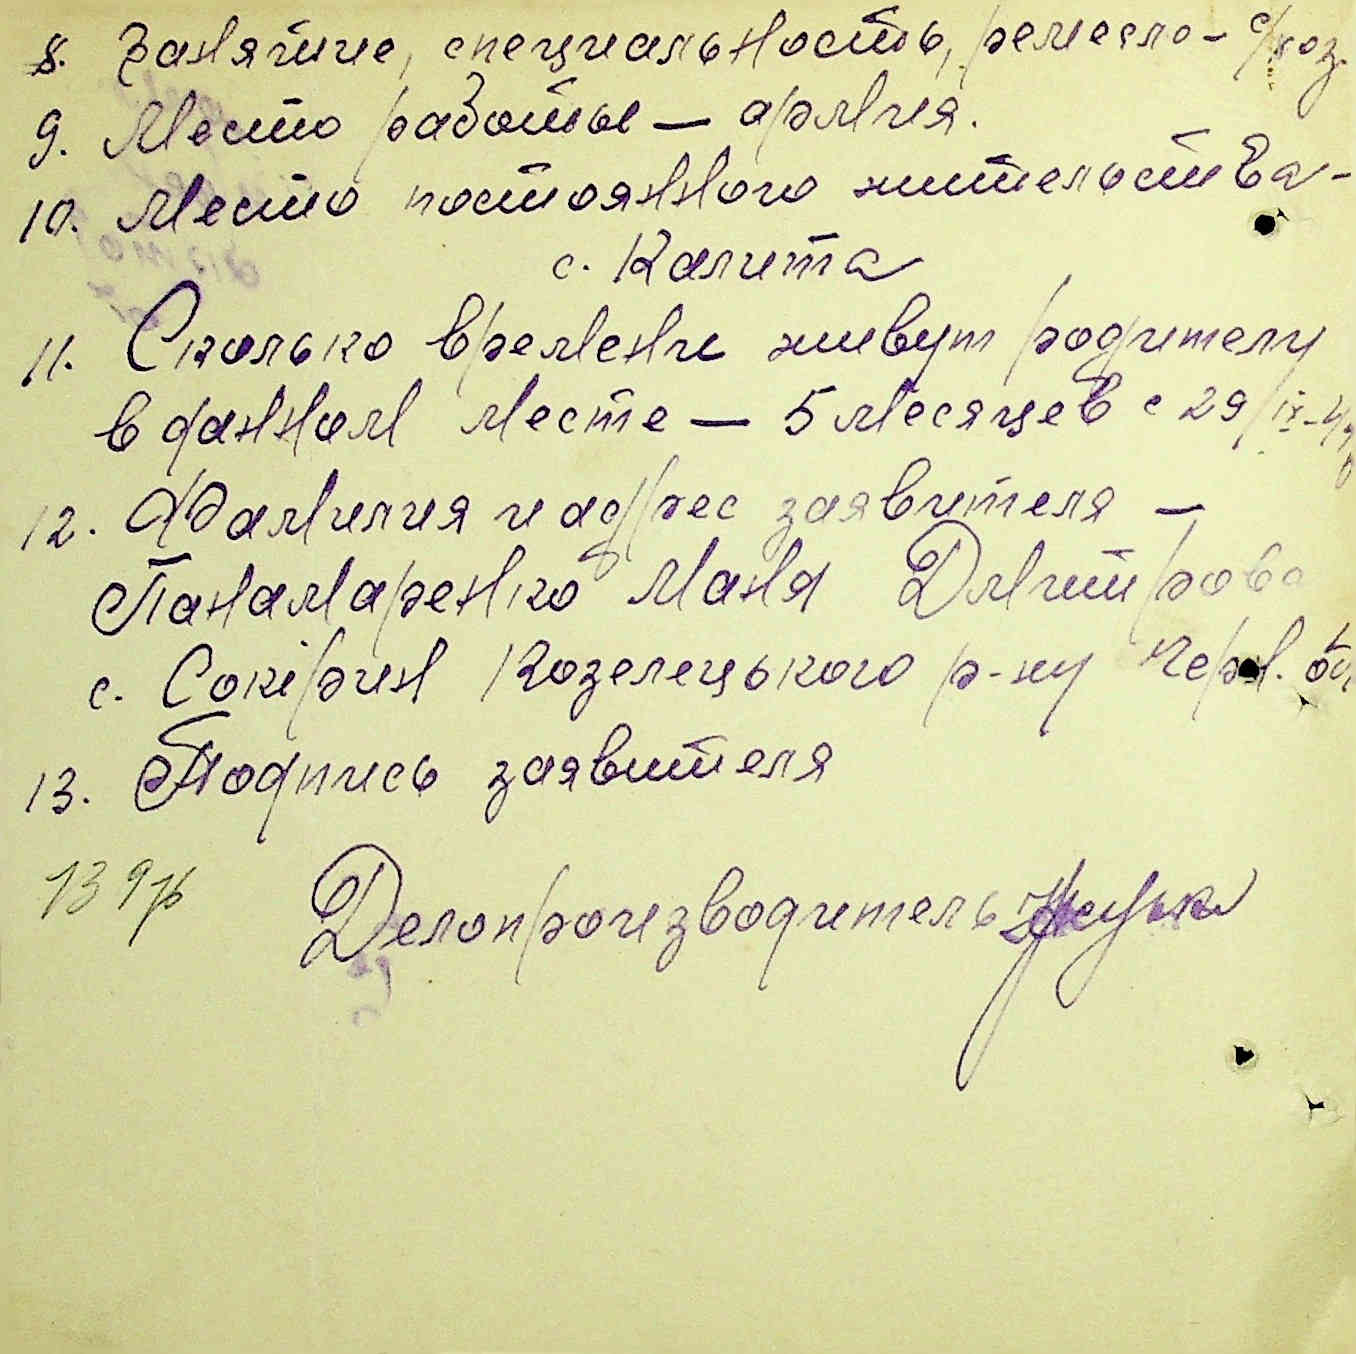 8. Занятие, специальность, ремесло - с/хоз.
9. Место работы — армия.
10. Место постоянного жительства -
с. Калита
11. Сколько времени живут родители
в данном месте — 5 месяцев с 29/IX-
12. Фамилия и адрес заявителя —
Панамаренко Маня Дмитрова
с. Сокірин Козелецького р-ну Черн. обл
13. Подпись заявителя
Делопроизводитель Жук